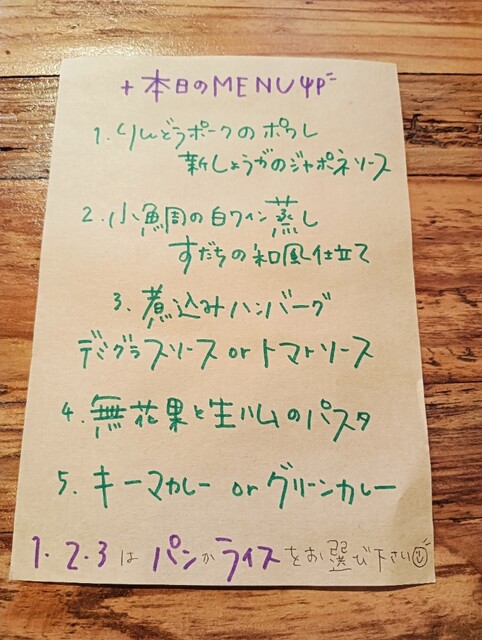 + 本日のMENU
1. りんどうポークのポワレ
新しょうがのジャポネソース
2. 小鯛の白ワイン蒸し
すだちの和風仕立て
3. 煮込みハンバーグ
デミグラスソース or トマトソース
4. 無花果と生ハムのパスタ
5. キーマカレー or グリーンカレー
1・2・3は パンかライスをお選び下さい